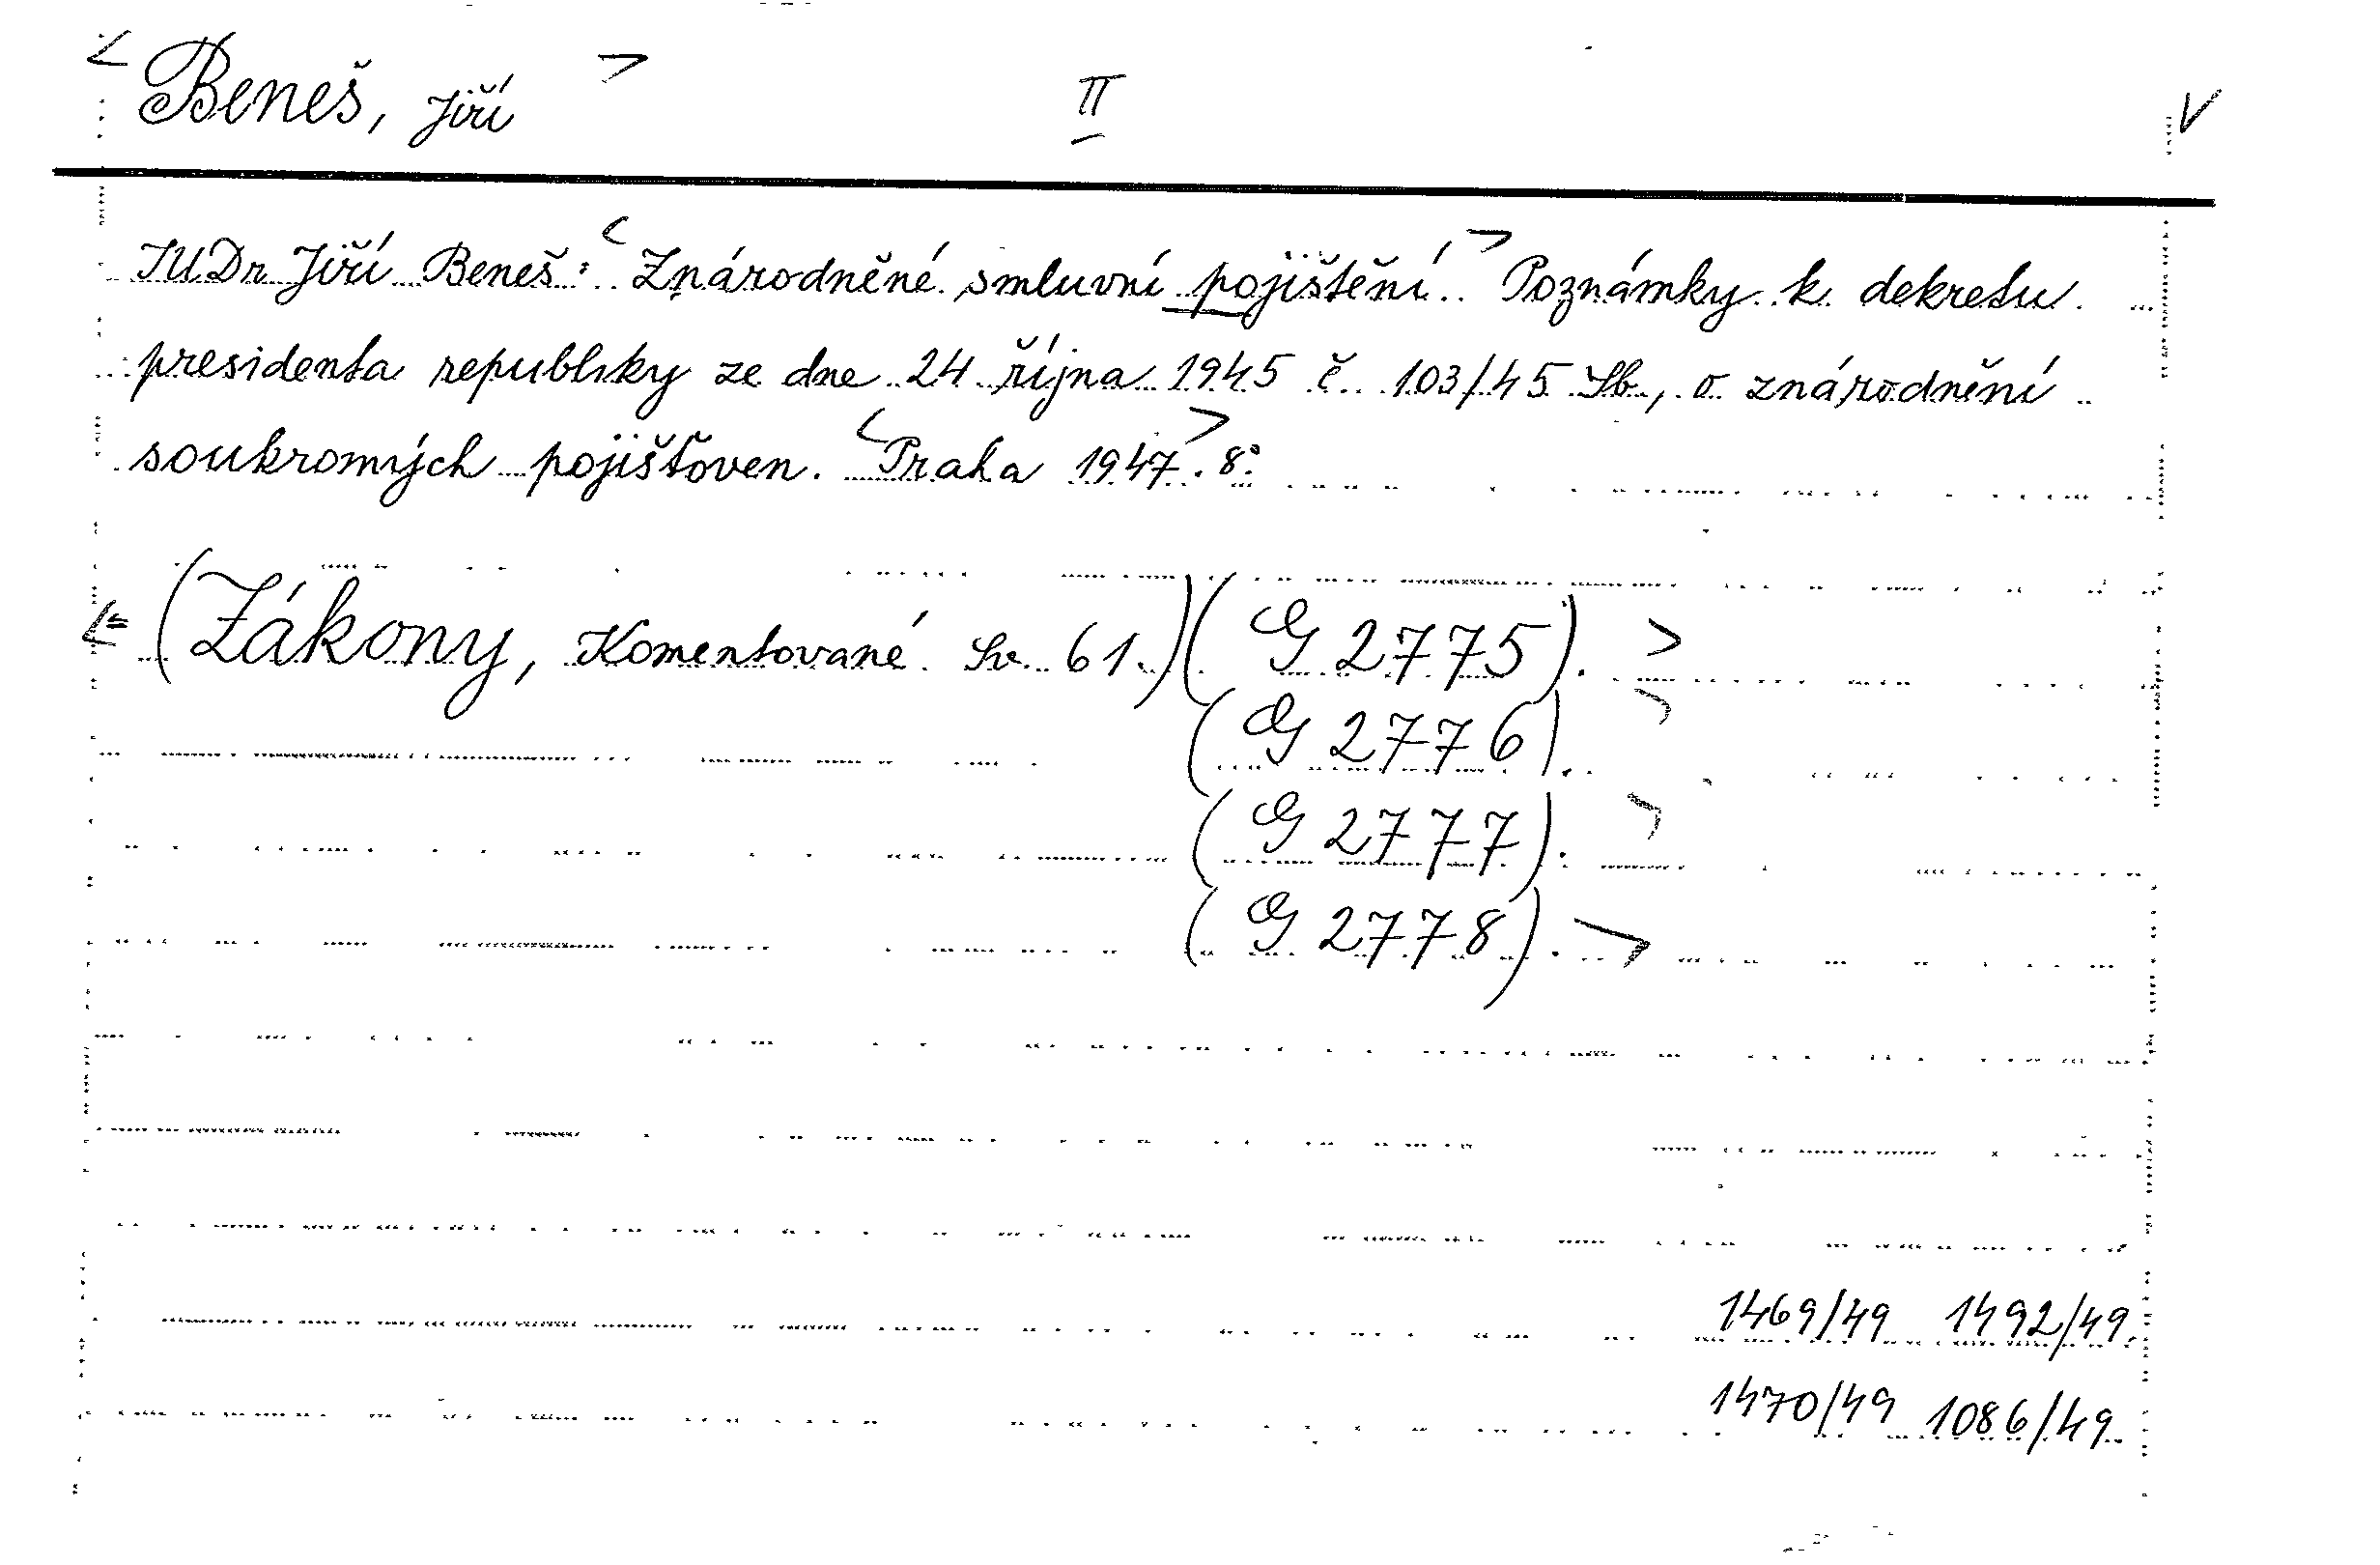 < Beneš, Jiří > II V
JUDr Jiří Beneš: < Znárodněné smluvní pojištění. > Poznámky k dekretu
presidenta republiky ze dne 24 října 1945 č. 103/45 Sb., o znárodnění
soukromých pojišťoven. < Praha 1947 >. 8°.
< (Zákony, Komentované. Sv. 61.) (G 2775). >
(G 2776). >
(G 2777). >
(G 2778). >
1469/49 1492/49
1470/49 1086/49